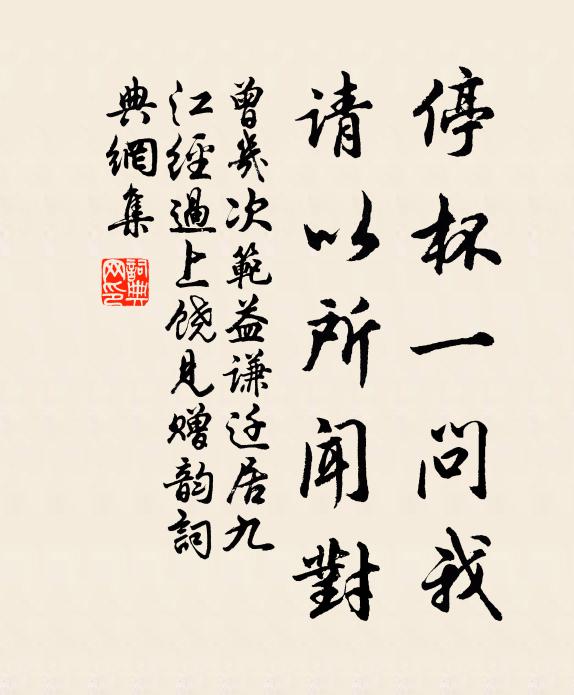 停杯一问我
请以所闻對
曾幾次範益谦迁居九
江經過上饶見赠韵詞
典網集
詞典
网印